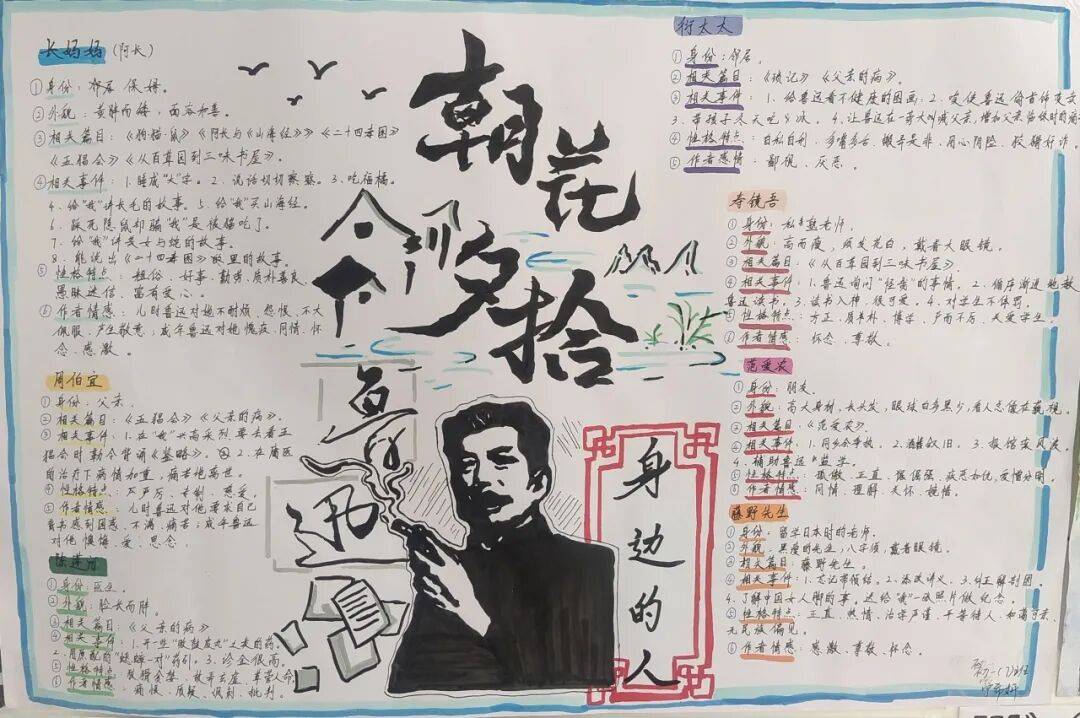 长妈妈(阿长)
①身份:邻居 保姆。
②外貌:黄胖而矮,面容和善。
③相关篇目:《狗·猫·鼠》《阿长与《山海经》》《二十四孝图》
《五猖会》《从百草园到三味书屋》。
④相关事件:1.睡成"大"字。2.说话切切察察。3.吃福橘。
4.给"我"讲长毛的故事。5.给"我"买山海经。
6.踩死隐鼠却骗"我"是被猫吃了。
7.给"我"讲美女与蛇的故事。
8.能说出《二十四孝图》故里的故事。
⑤性格特点:粗俗、好事、勤劳、质朴善良、
愚昧迷信、富有爱心。
⑥作者情感:儿时鲁迅对她不耐烦、怨恨、不大
佩服、产生敬意;成年鲁迅对她愧疚、同情、怀
念、感激。
周伯宜
①身份:父亲。
②相关篇目:《五猖会》《父亲的病》。
③相关事件:1.在"我"兴高采烈要去看五
猖会时勒令背诵《鉴略》。2.在庸医
的治疗下病情加重,痛苦地离世。
④性格特点:严厉、专制、慈爱。
⑤作者情感:儿时鲁迅对他要求自己
背书感到困惑、不满、痛苦;成年鲁迅
对他懊悔、爱、思念。
陈莲河
①身份:医生。
②外貌:脸长而胖。
③相关篇目:《父亲的病》
④相关事件:1.开一些"败鼓皮丸"之类的药。
2.用原配的"蟋蟀一对"药引。3.诊金很高。
⑤性格特点:敛财贪婪、故弄玄虚、草菅人命
⑥作者情感:痛恨、质疑、讽刺、批判。
朝花
夕拾
鲁
迅
身
边
的
人
衍太太
①身份:邻居。
②相关篇目:《琐记》《父亲的病》。
③相关事件:1.给鲁迅看不健康的图画;2.唆使鲁迅偷首饰变卖
3.带孩子冬天吃冰。4.让鲁迅在一旁大叫父亲,增加父亲临终时的痛
④性格特点:自私自利、多嘴多舌、搬弄是非、用心阴险、狡猾奸诈。
⑤作者感情:鄙视、厌恶。
寿镜吾
①身份:私塾老师。
②外貌:高而瘦,须发花白,戴着大眼镜。
③相关篇目:《从百草园到三味书屋》
④相关事件:1.鲁迅询问"怪哉"的事情。2.循序渐进地教
鲁迅读书。3.读书入神,很可爱。4.对学生不体罚。
⑤性格特点:方正、质朴、博学、严而不厉、关爱学生。
⑥作者情感:怀念、尊敬。
范爱农
①身份:朋友
②外貌:高大身材,长头发,眼球白多黑少,看人总像在藐视。
③相关篇目:《范爱农》
④相关事件:1.同乡会争执。2.酒楼叙旧。3.报馆案风波。
4.辅助鲁迅监学。
⑤性格特点:孤傲、正直、倔强、疾恶如仇、爱憎分明。
⑥作者情感:同情、理解、关怀、惋惜。
藤野先生
①身份:留学日本时的老师。
②外貌:黑瘦的先生,八字须,戴着眼镜。
③相关篇目:藤野先生。
④相关事件:1.忘记带领结。2.添改讲义。3.纠正解剖图。
4.了解中国女人脚的事,送给"我"一张照片做纪念。
⑤性格特点:正直、热情、治学严谨、平等待人、和蔼可亲、
无民族偏见。
⑥作者情感:感激、尊敬、怀念。
初一(7)班